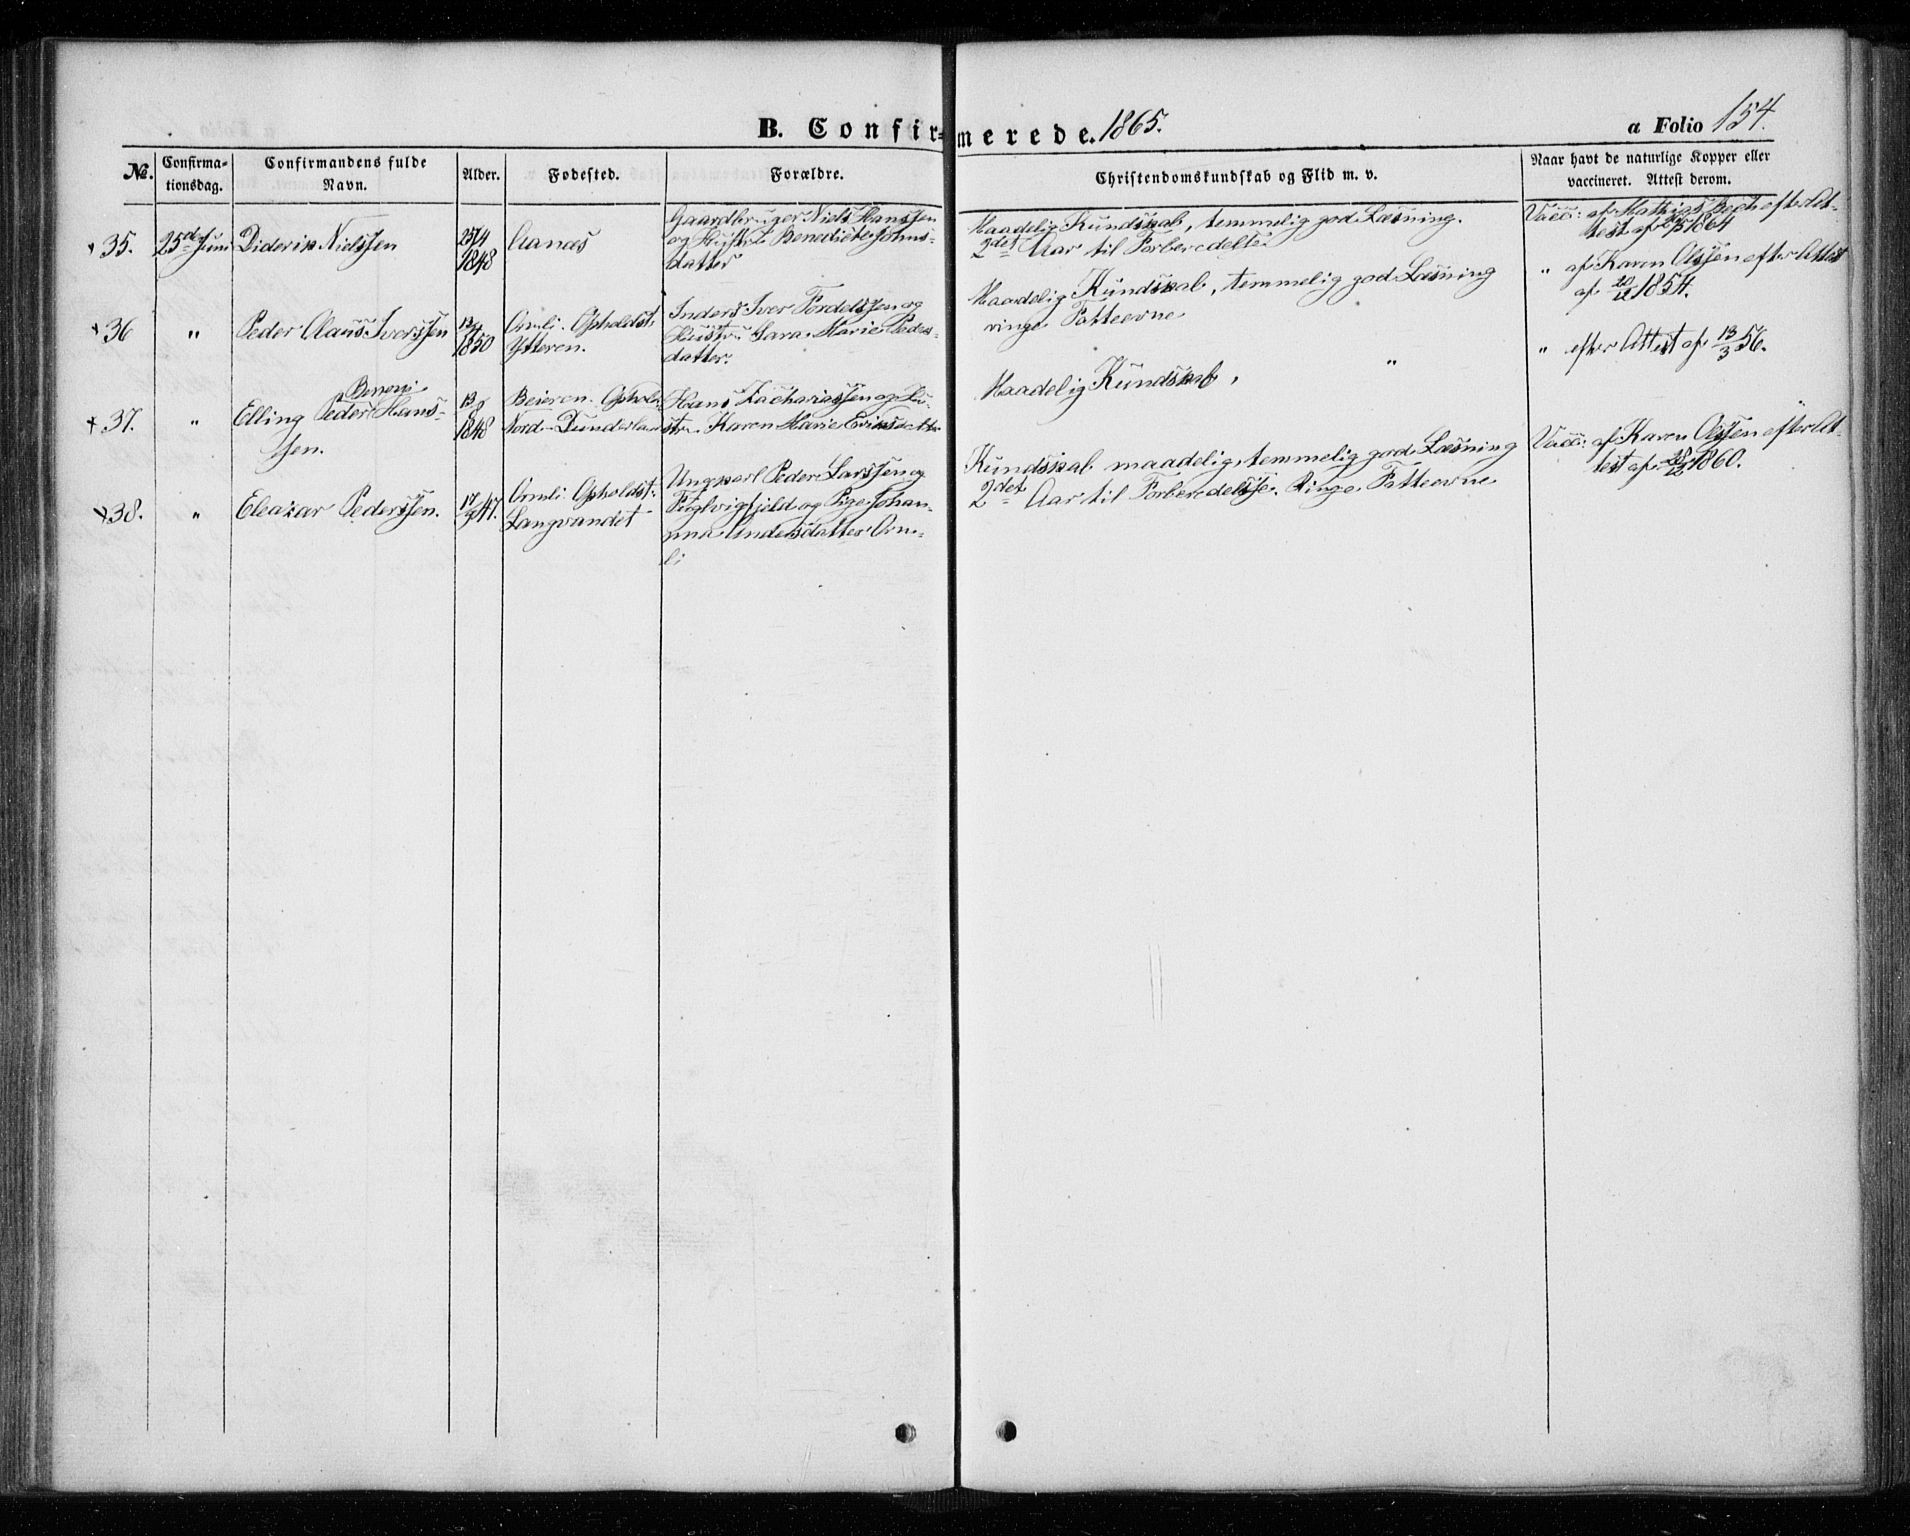 B. Confirmerede. 1865.
a Folio 154.
No. Confirmationsdag. Confirmandens fulde Navn. Alder. Fodested. Forældre. Christendomskundskab og Flid m. v. Naar havt de naturlige Kopper eller vaccineret. Attest derom.
35. 25de Juni Diderik Nielssen 25/4 1848
Gaardbruger Niels Hanssen
og Hustr: Benedicte Johns-
datter
Maadelig Kundskab, temmelig god Læsning.
2det Aar til Forberedelse
Vacc: af Mathias Bech efter At-
test af 1864
36 " Peder Olaus Iverssen 13/4 1850
Opholdst:
Ytteren.
Inders Iver Tordelssen og
Hustru Sara Marie Peders-
datter.
Maadelig Kundskab, temmelig god Læsning
ringe Fatteevne
" af Karen Olssen efter Attest
af 1854.
37. " Elling Benoni Peder Hans-
sen.
13/8 1848
Beieren. Ophold
Nord-Dunderland
Hans Zachariassen og Hu-
str: Karen Marie Eriksdatter
Maadelig Kundskab, "
" efter Attest af 13/3 56.
38. " Eleazar Pederssen. 17/9 47.
Opholdst:
Langvandet
Ungkarl Peder Larssen
og Pige Johan-
na Andersdatter
Kundskab maadelig, temmelig god Læsning
2det Aar til Forberedelse. Ringe Fatteevne
Vacc: af Karen Olssen efter At-
test af 1860.